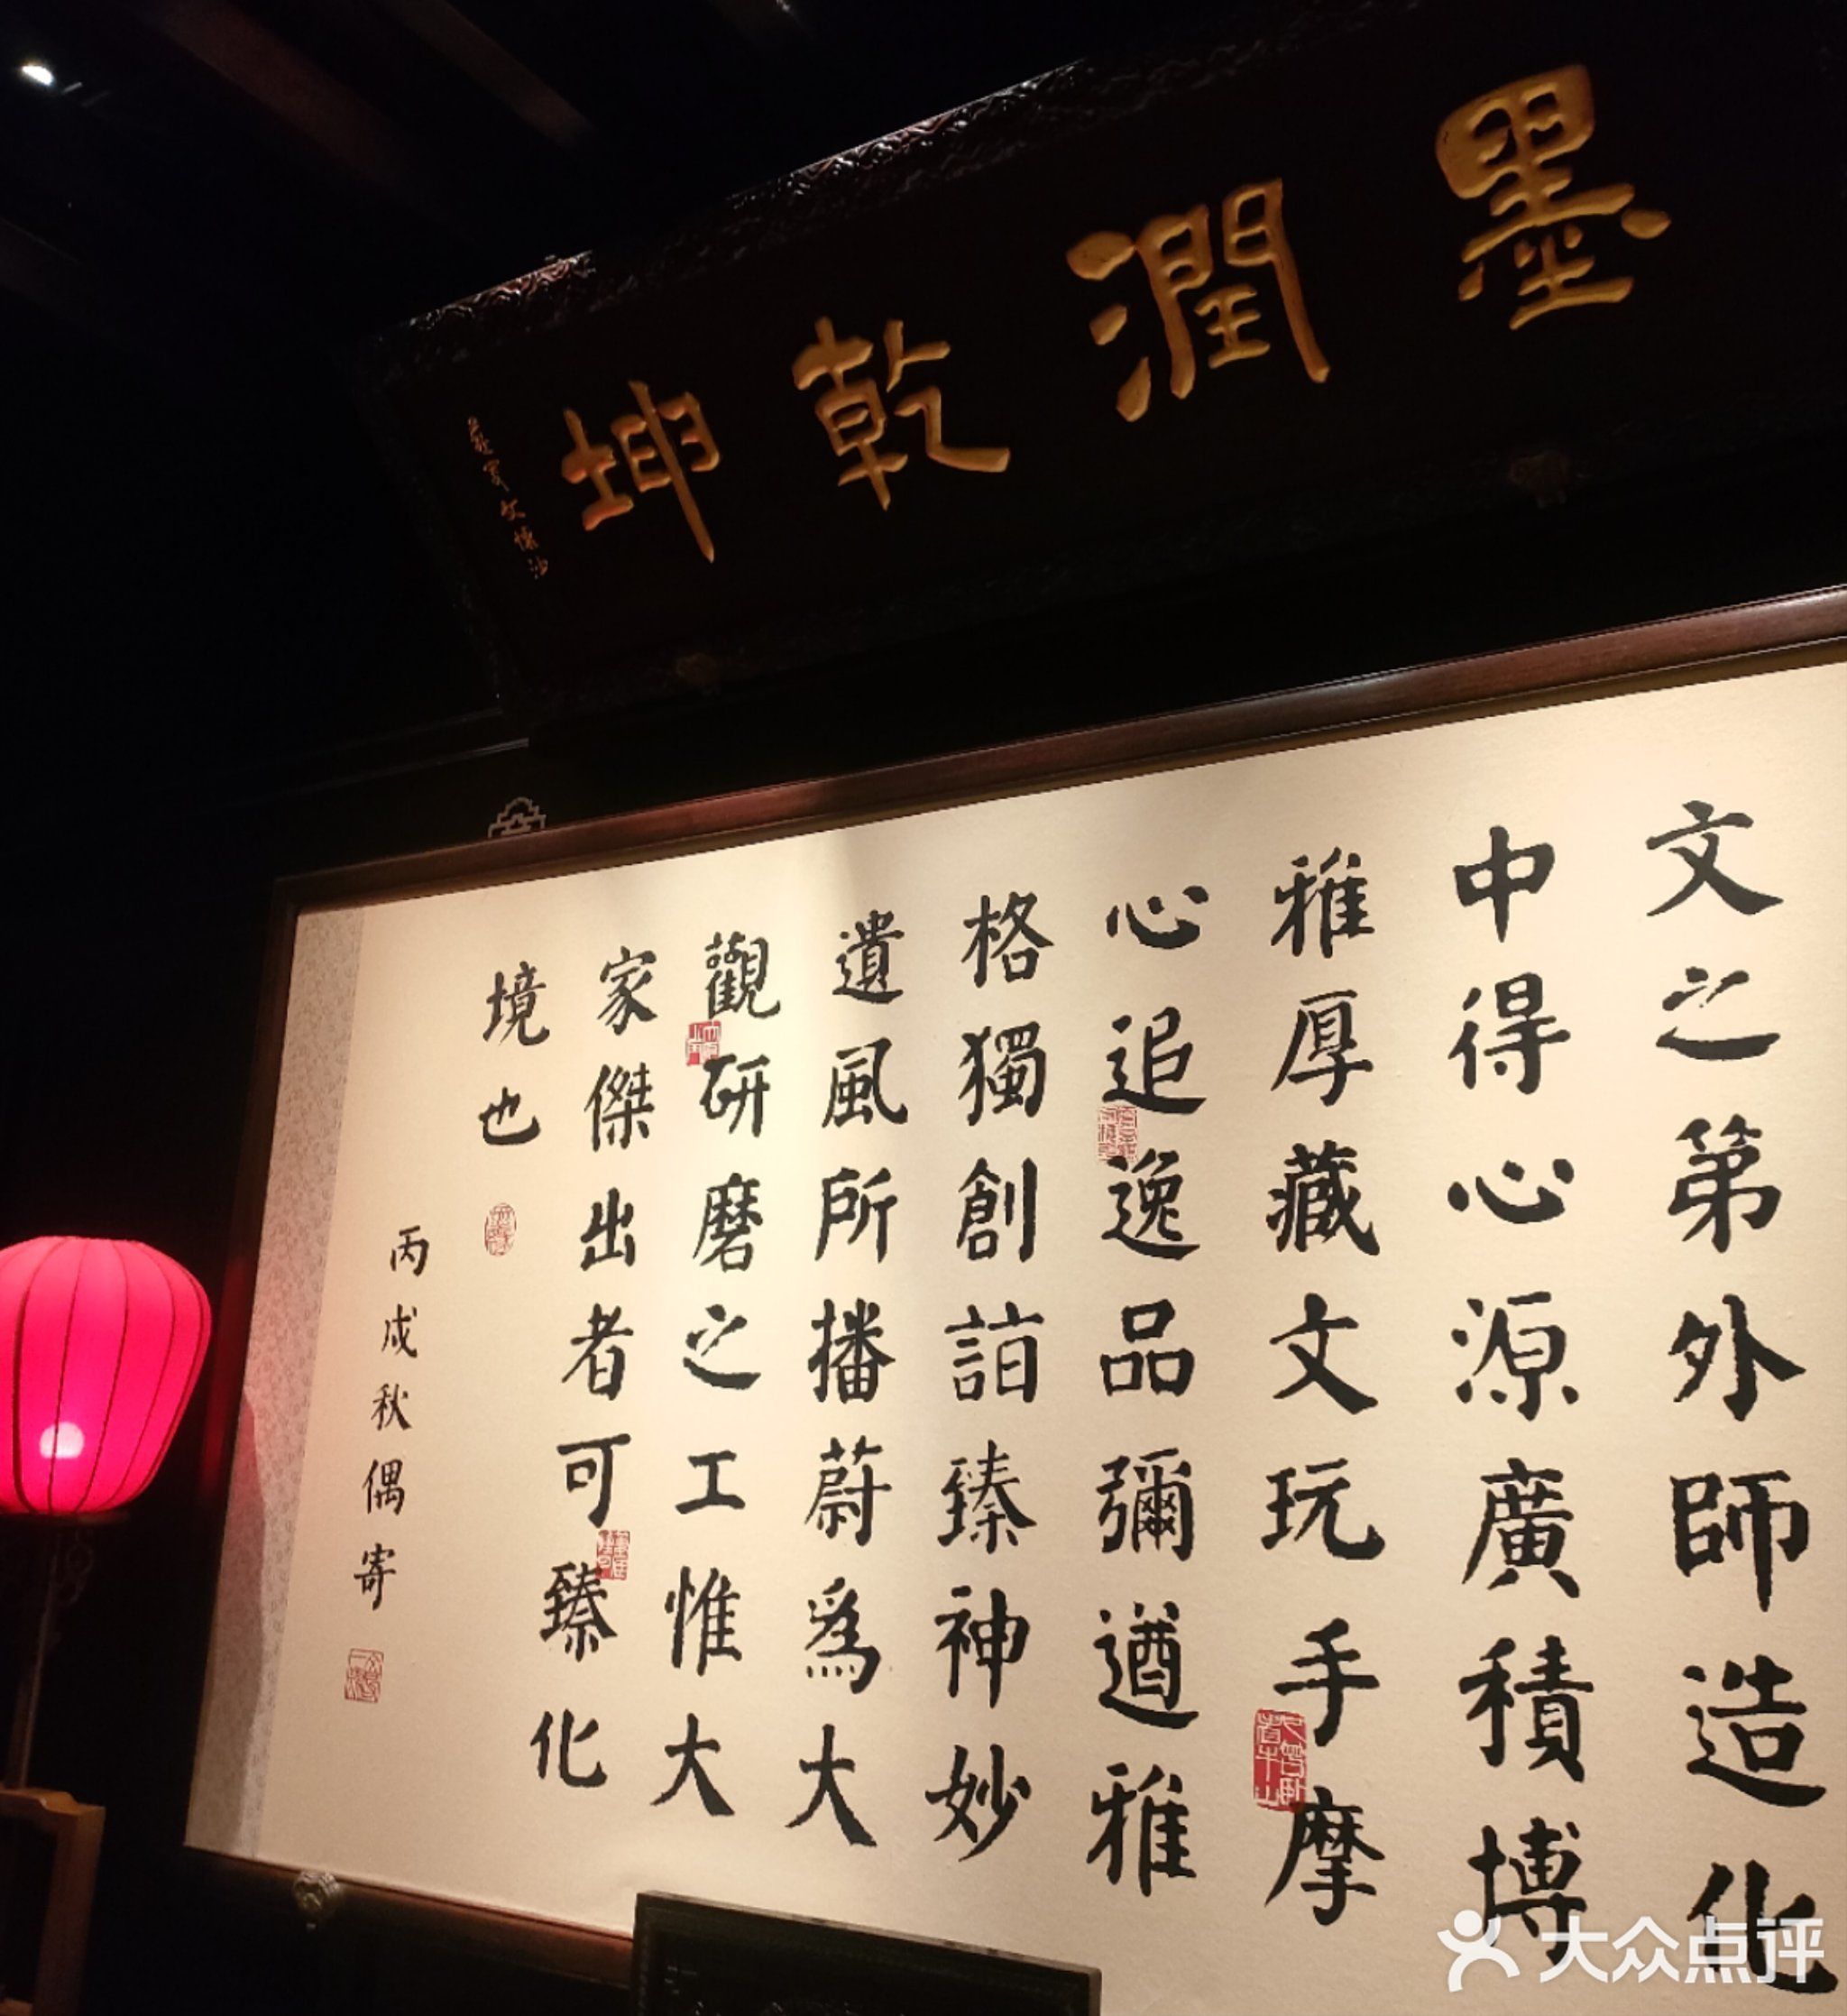 墨潤乾坤
文懷沙
文之第外師造化
中得心源廣積博
雅厚藏文玩手摩
心追逸品彌遒雅
格獨創詣臻神妙
遺風所播蔚爲大
觀研磨之工惟大
家傑出者可臻化
境也
丙戌秋偶寄
大众点评